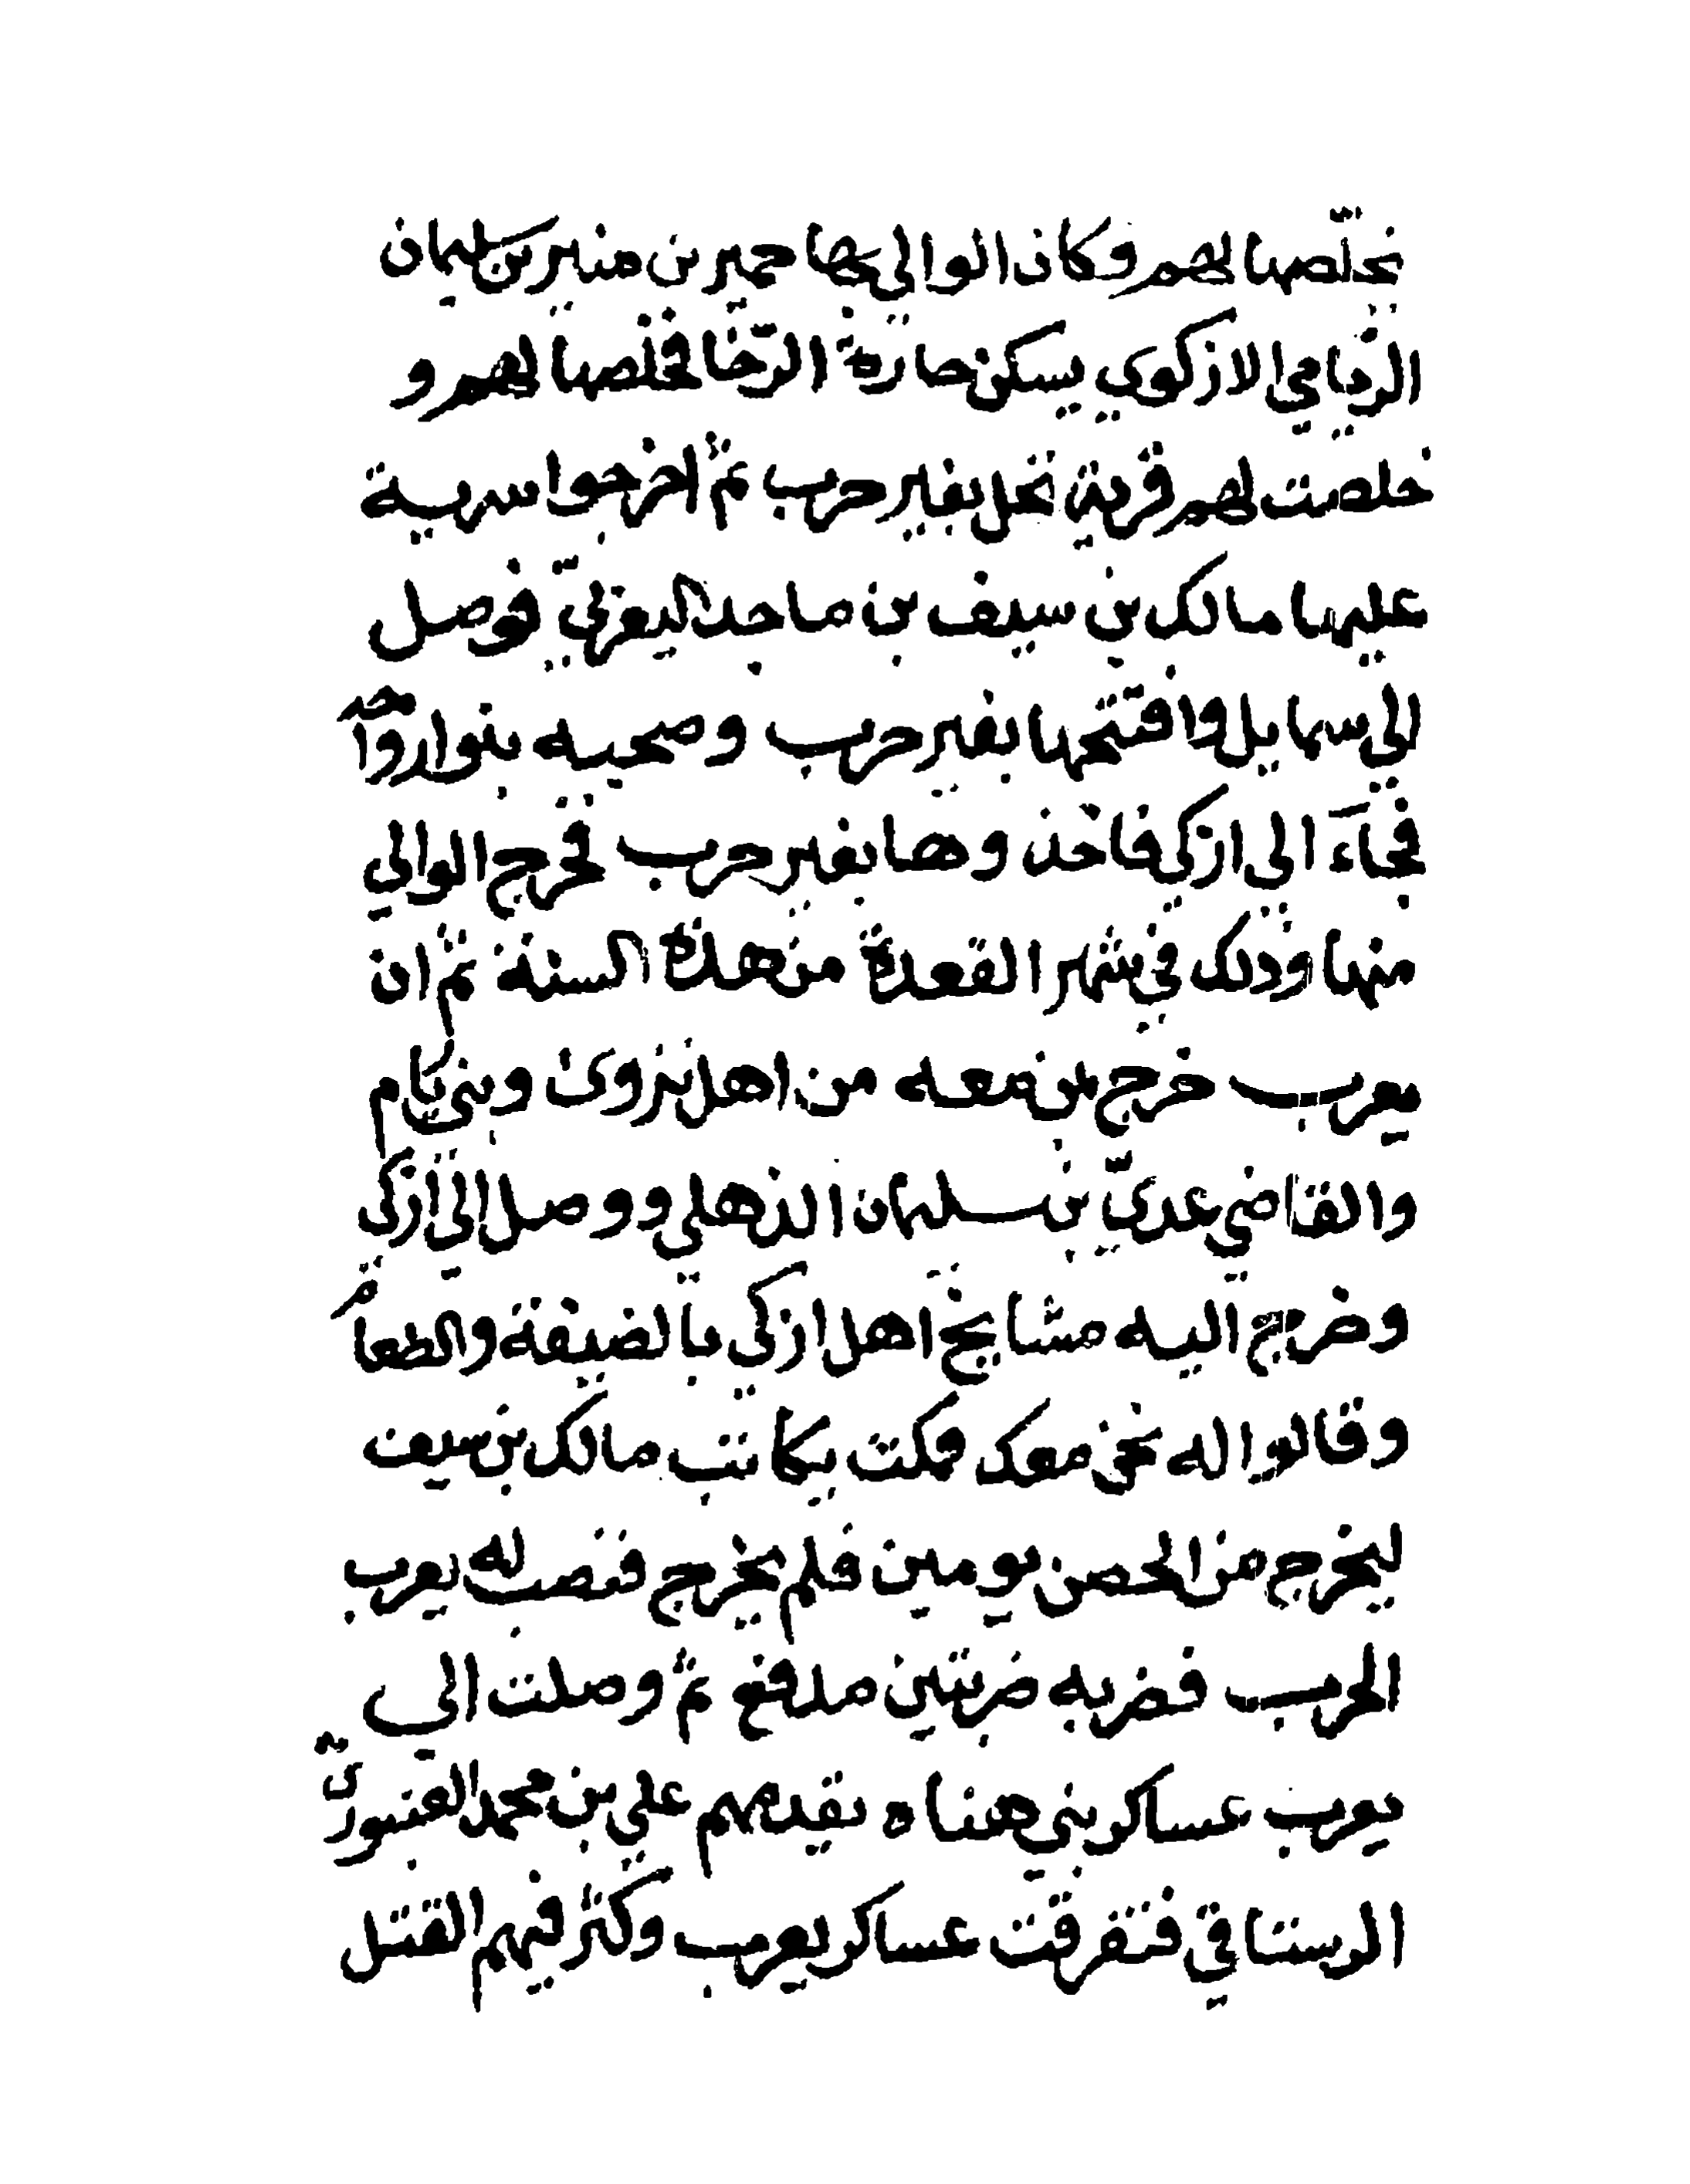 فخلّصها لهم وكان الوالي بها حمير بن منير بن سليمان
الريامي الازكوي يسكن حارة الرّحا فخلّصها لهم و
خلصت لهم قرية نخل بغير حرب ثم اخرجوا سرية
عليها مالك بن سيف بن ماجد اليعربيّ فوصل
الى سمايل وافتتحها بغير حرب وصحبه بنوا رواحه
فجآء الى ازكي فاخذوها بغير حرب فخرج الوالي
منها وذلك في شهر القعدة من هذة السنة ثم ان
يعرب خرج بمن معه من اهل نزوى وبني ريام
والقاضي عديّ بن سليمان الذهلي ووصل الى ازكى
وخرج اليه مشايخ اهل ازكي بالضيفة والطعام
وقالوا له نحن معك فمكث يكاتب مالك بن سيف
ليخرج من الحصن يومين فلم يخرج فنصب له يعرب
الحرب فضربه ضربتين مدفع ثم وصلت الي
يعرب عساكر بني هناه يقدمهم علي بن محمد العنبوريّ
الرستاقي فتفرقت عساكر يعرب وكثر فيهم القتل